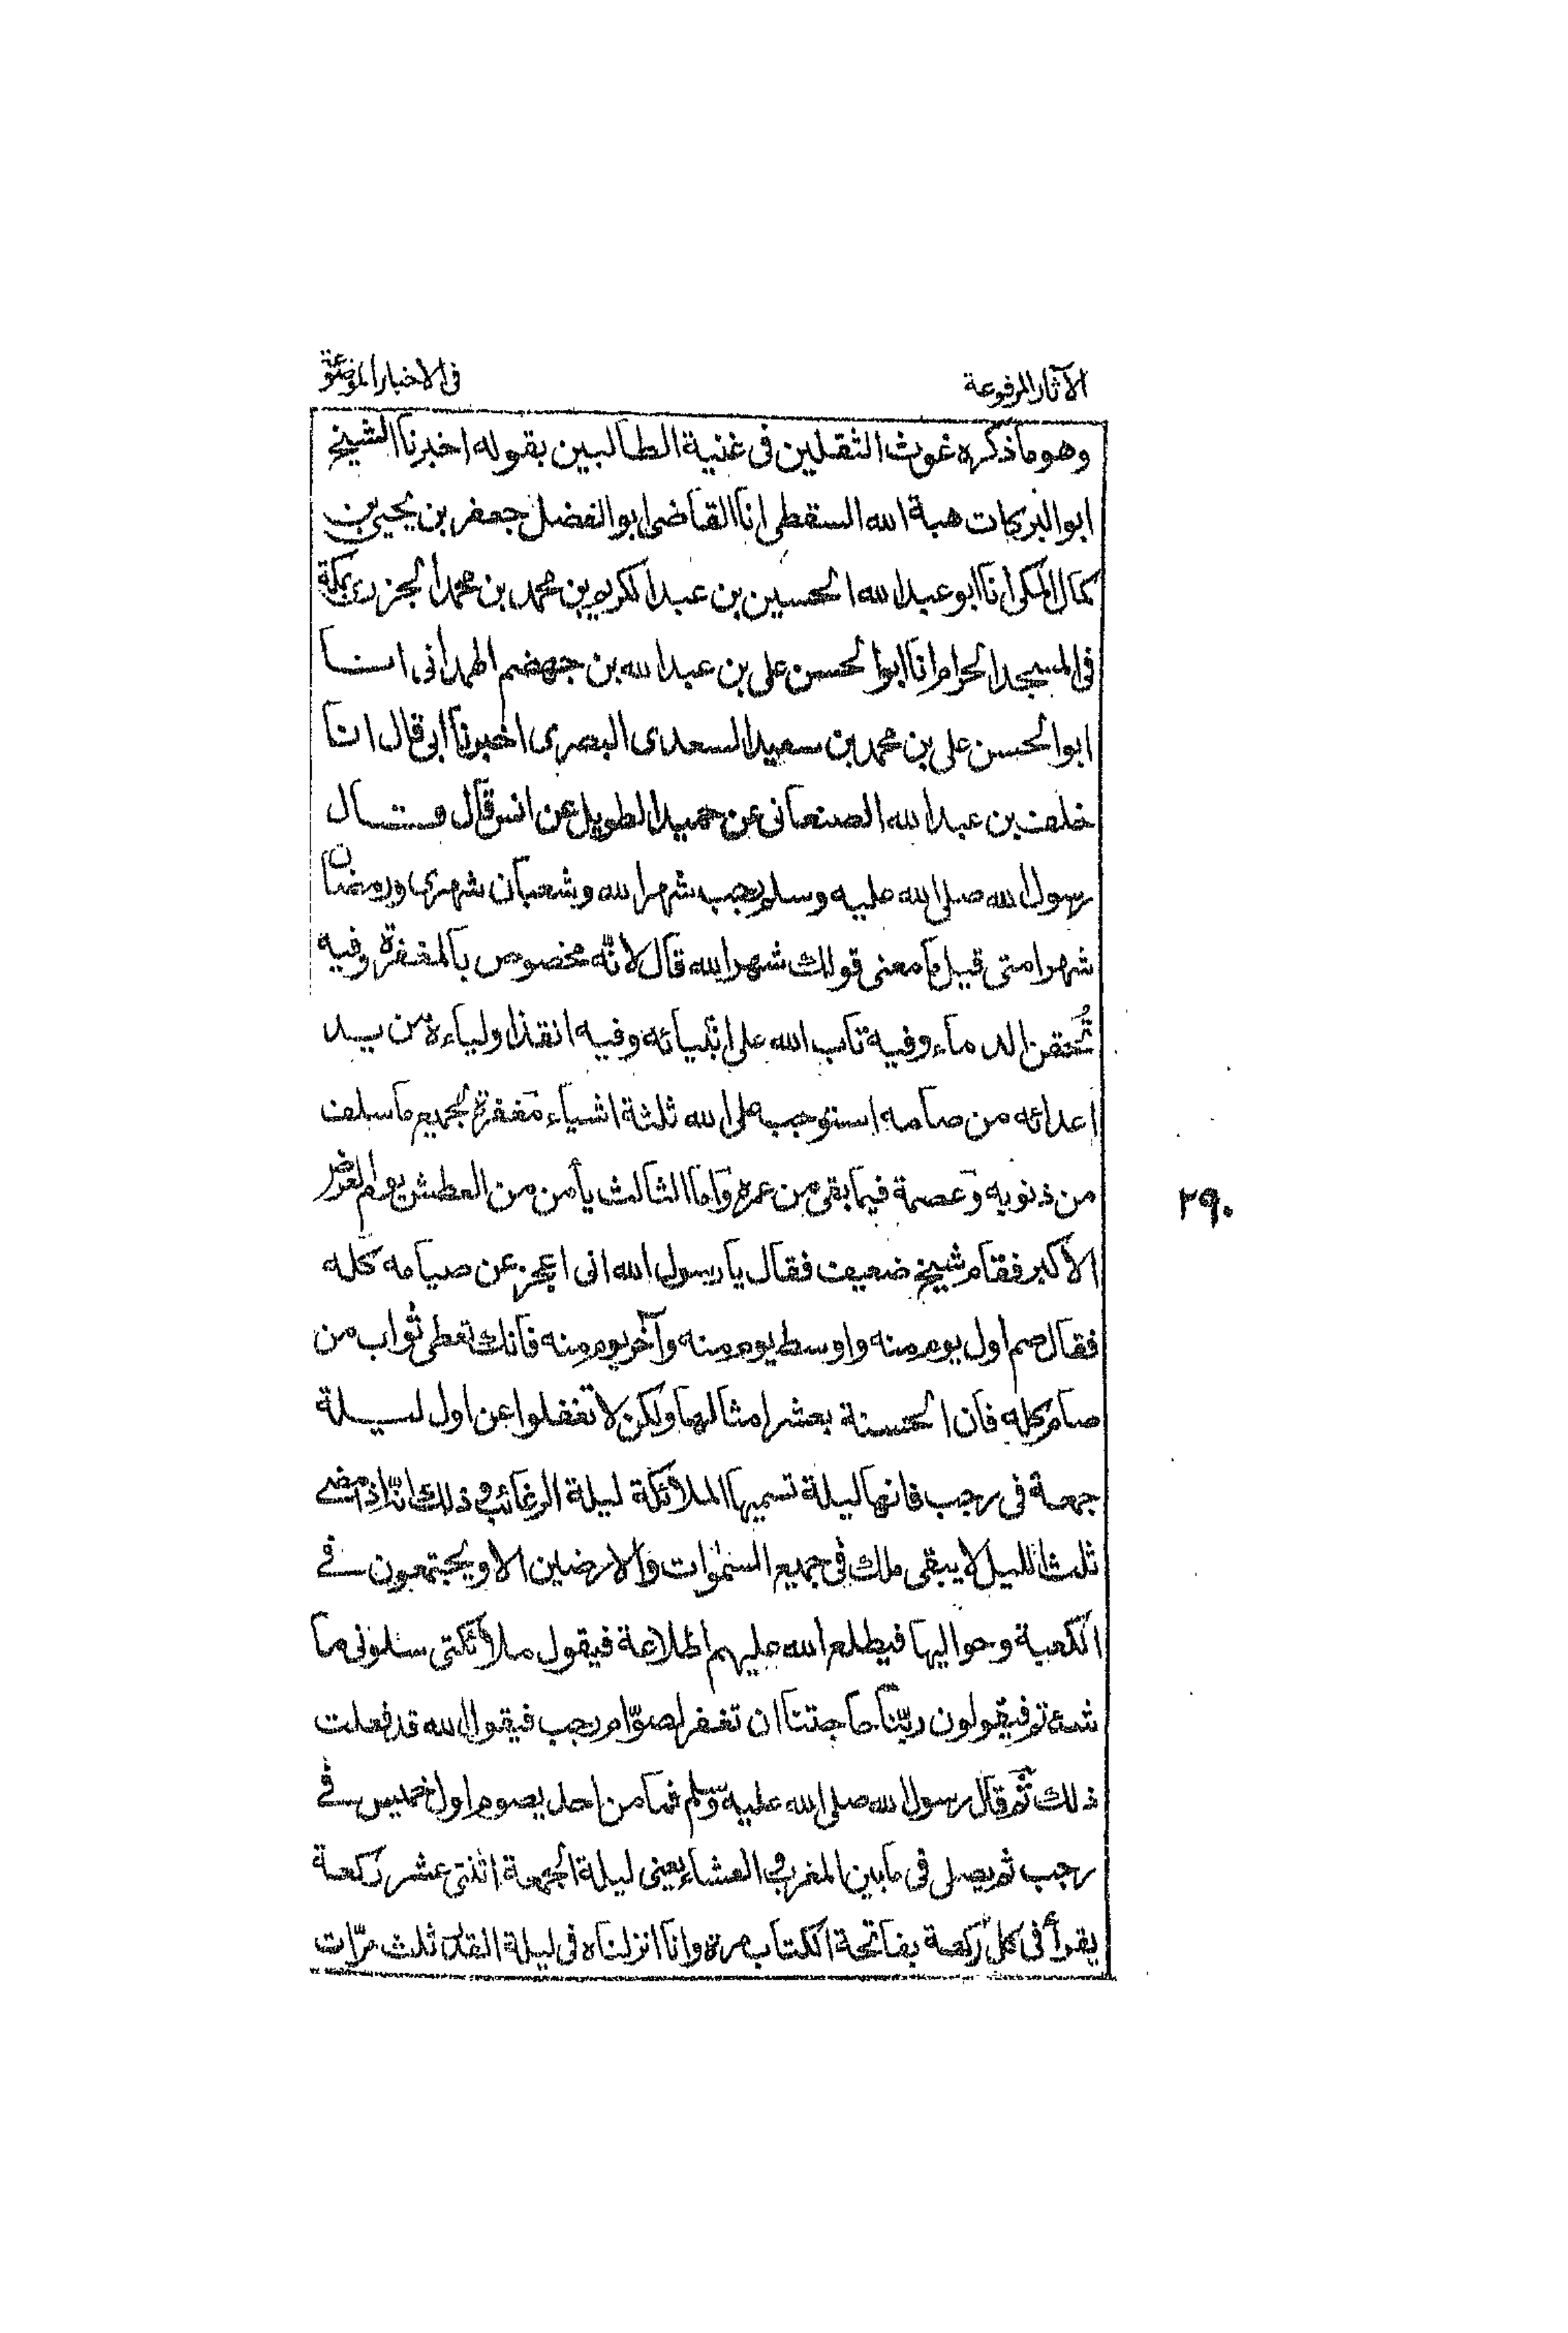 الآثار المرفوعة
فى الاخبار الموضوعة
وهو ما ذكره غوث الثقلين فى غنية الطالبين بقوله اخبرنا الشيخ
ابو البركات هبة الله السقطى انا القاضى ابو الفضل جعفر بن يحيى بن
كمال المكى انا ابو عبد الله الحسين بن عبد الكريم بن محمد بن محمد الجزرى بمكة
فى المسجد الحرام انا ابو الحسن على بن عبد الله بن جهضم الهمدانى انا
ابو الحسن على بن محمد بن سعيد السعدى البصرى اخبرنا ابى قال انا
خلف بن عبد الله الصنعانى عن حميد الطويل عن انس قال قال
رسول الله صلى الله عليه وسلم رجب شهر الله وشعبان شهرى ورمضان
شهر امتى قيل ما معنى قولك شهر الله قال لانّه مخصوص بالمغفرة وفيه
تُحقن الدماء وفيه تاب الله على انبيائه وفيه انقذ اولياءه من يد
اعدائه من صامه استوجب على الله ثلثة اشياء مغفرة لجميع ما سلف
من ذنوبه وعصمة فيما بقى من عمره واما الثالث يأمن من العطش يوم العرض
الاكبر فقام شيخ ضعيف فقال يا رسول الله انى اعجز عن صيامه كله
فقال صم اول يوم منه واوسط يوم منه وآخر يوم منه فانك تعطى ثواب من
صام كله فان الحسنة بعشر امثالها ولكن لا تغفلوا عن اول ليلة
جمعة فى رجب فانها ليلة تسميها الملائكة ليلة الرغائب و ذلك انّه اذا مضى
ثلث الليل لا يبقى ملك فى جميع السمٰوات والارضين الا ويجتمعون فى
الكعبة وحواليها فيطلع الله عليهم اطلاعة فيقول ملائكتى سلونى ما
شئتم فيقولون ربّنا حاجتنا ان تغفر لصوّام رجب فيقول الله قد فعلت
ذلك ثم قال رسول الله صلى الله عليه وسلم فما من احد يصوم اول خميس فى
رجب ثم يصلى فى ما بين المغرب و العشاء يعنى ليلة الجمعة اثنتى عشر ركعة
يقرأ فى كل ركعة بفاتحة الكتاب مرة وانا انزلناه فى ليلة القدر ثلث مرّات
٢٩٠